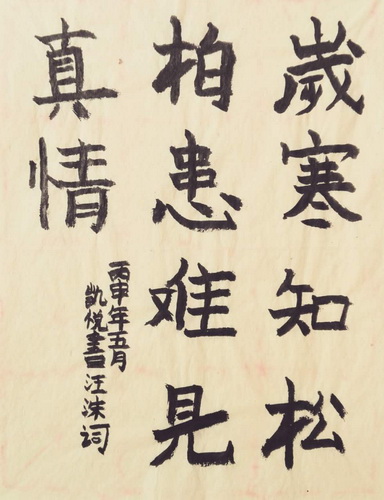 歲寒知松
柏患难見
真情
丙申年五月
凯悦書汪洙词